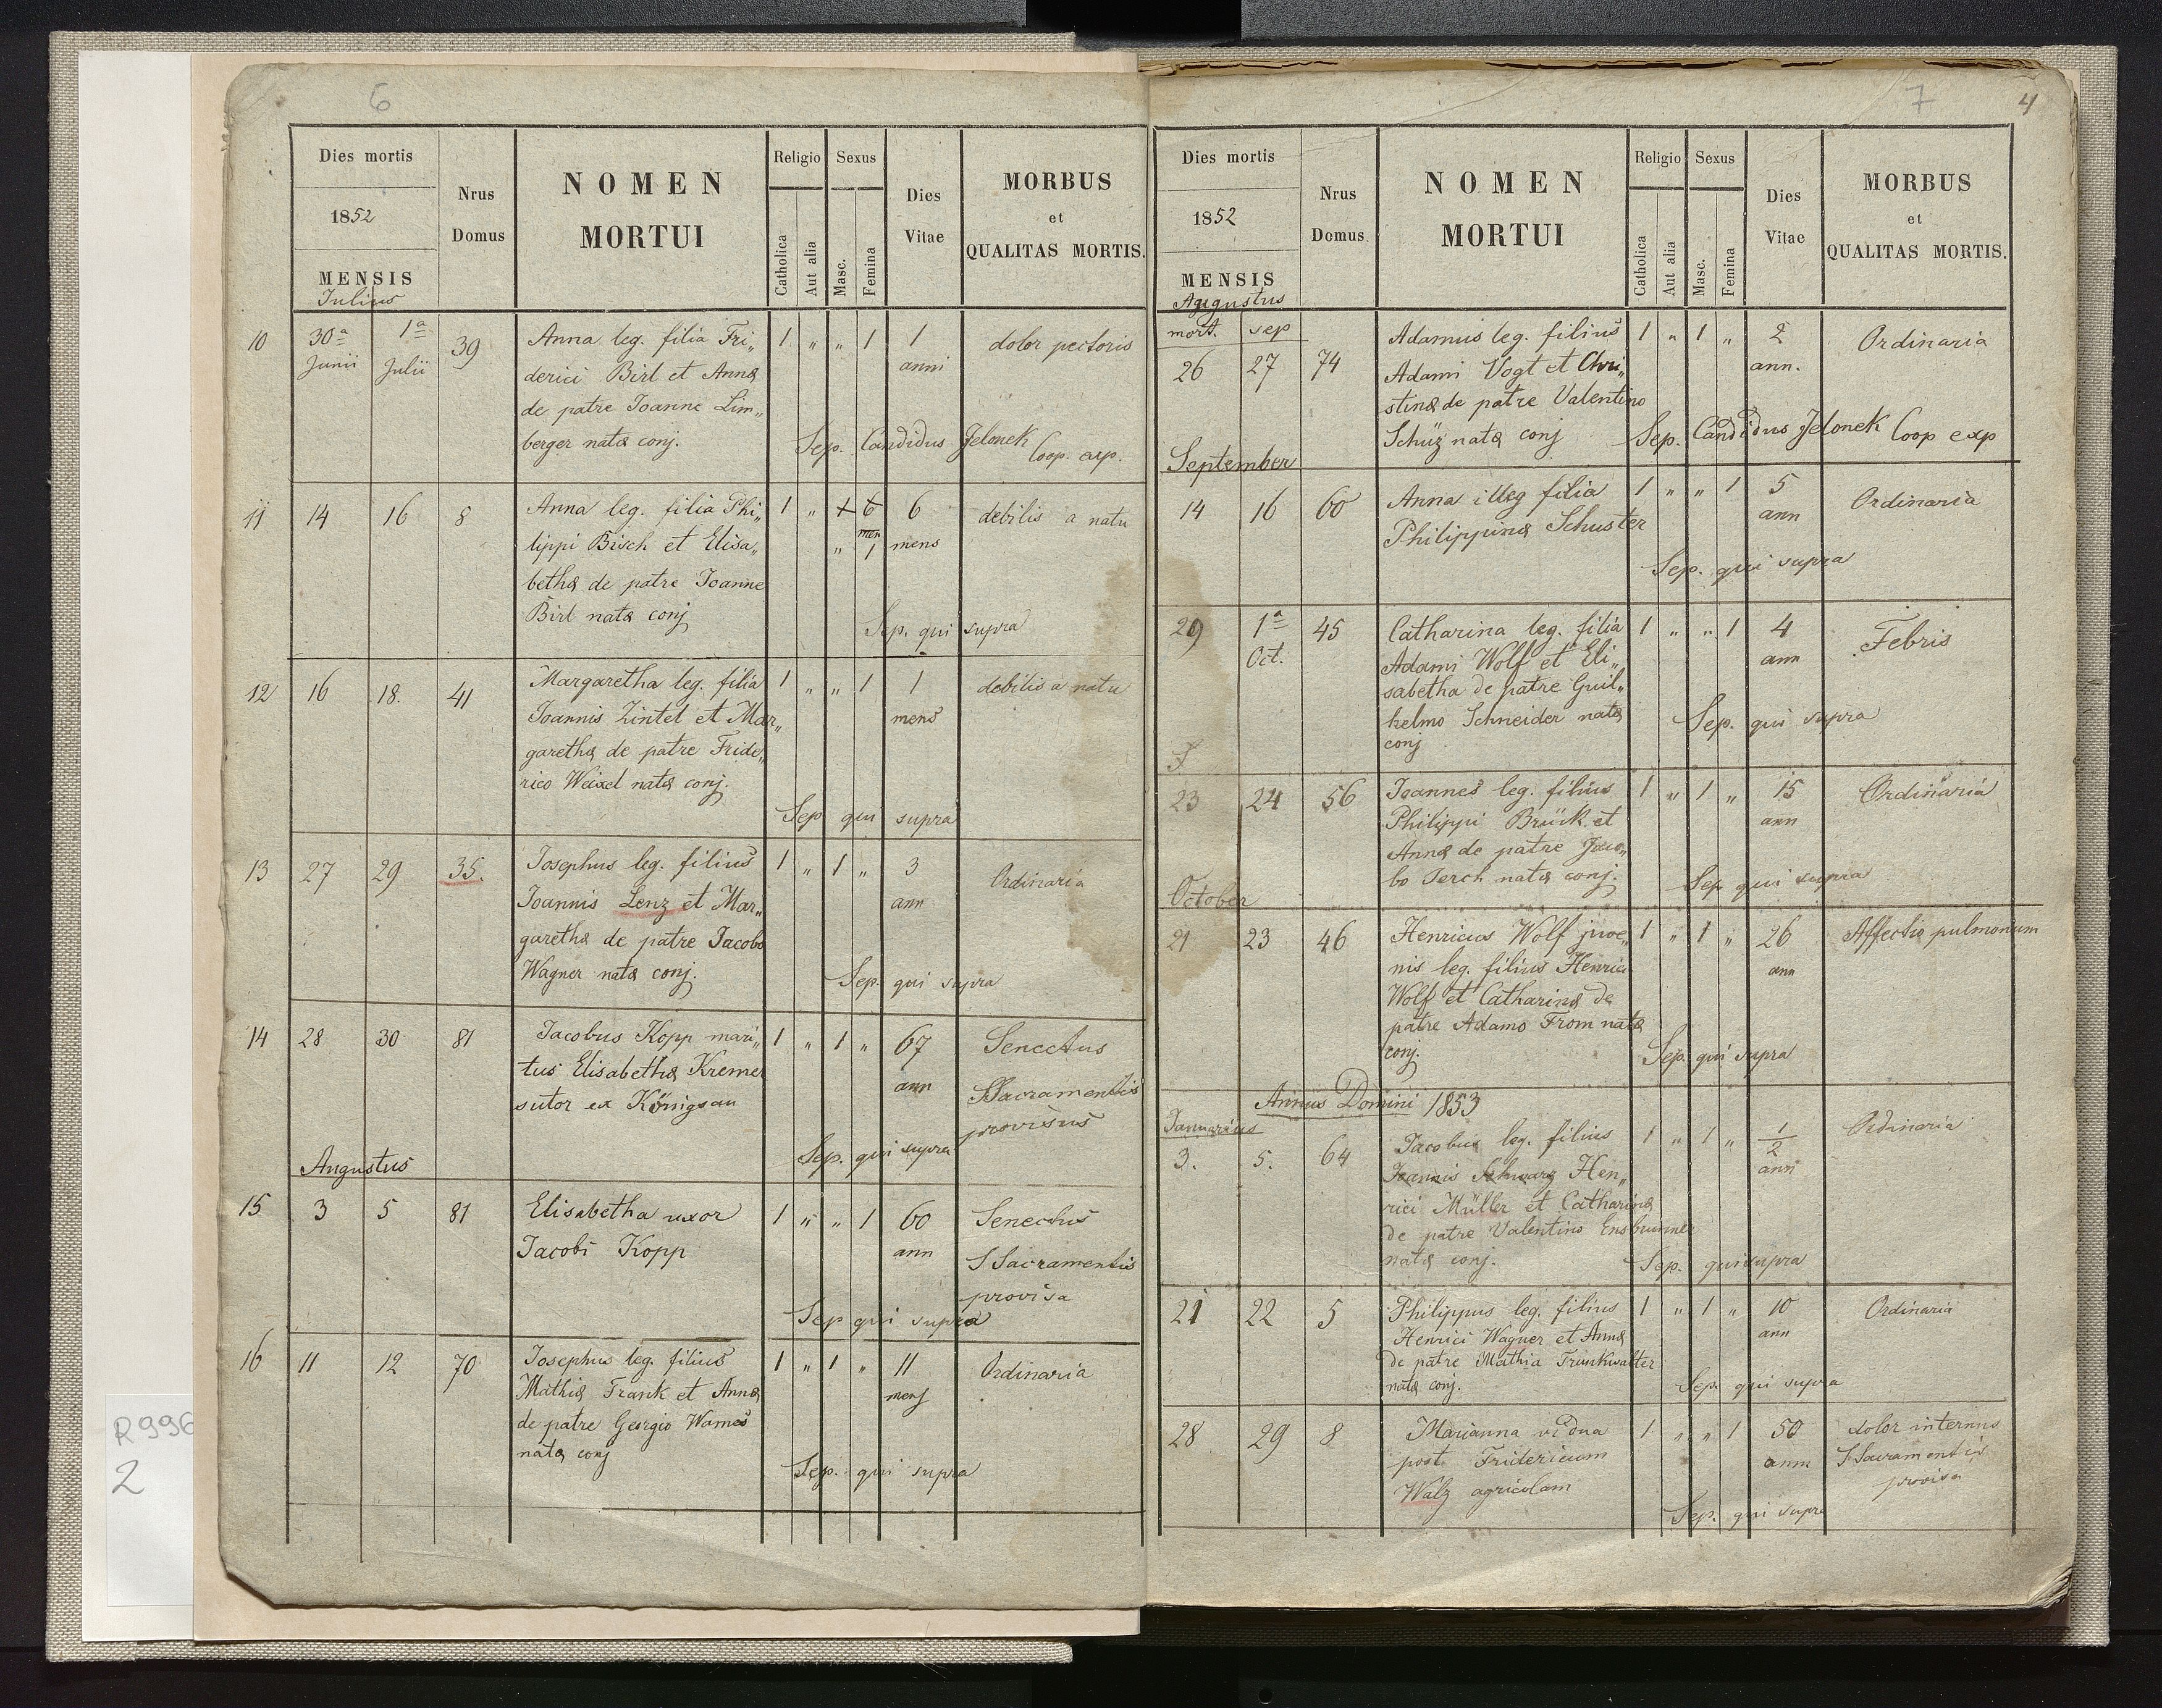 6
Dies mortis
1852
MENSIS
Julius
Nrus
Domus
NOMEN
MORTUI
Religio
Catholica
Aut alia
Sexus
Masc.
Femina
Dies
Vitae
MORBUS
et
QUALITAS MORTIS.
10 30a 1a 39 Anna leg. filia Fri„ 1 „ „ 1 1 dolor pectoris
Junii Julii derici Birl et Annæ anni
de patre Joanne Lim„
berger natæ conj. Sep. Candidus Jelonek Coop. exp.
11 14 16 8 Anna leg. filia Phi„ 1 „ 6 6 debilis a natu
lippi Bisch et Elisa„ men „ 1 mens
bethæ de patre Joanne
Birl natæ conj Sep. qui supra
12 16 18. 41 Margaretha leg. filia 1 „ „ 1 1 debilis a natu
Joannis Zintel et Mar„ mens
garethæ de patre Fride„
rico Weixel natæ conj.
Sep qui supra
13 27 29 35. Josephus leg. filius 1 „ 1 „ 3 Ordinaria
Joannis Lenz et Mar„ ann
garethæ de patre Jacobo
Wagner natæ conj. Sep. qui supra
14 28 30 81 Jacobus Kopp mari„ 1 „ 1 „ 67 Senectus
tus Elisabethæ Kremer ann SSacramentis
sutor ex Königsau provisus
Sep. qui supra
Augustus
15 3 5 81 Elisabetha uxor 1 „ „ 1 60 Senectus
Jacobi Kopp ann SSacramentis
provisa
Sep qui supra
16 11 12 70 Josephus leg. filius 1 „ 1 „ 11 Ordinaria
Mathiæ Frank et Annæ mens
de patre Georgio Wames
natæ conj
Sep. qui supra
R996
2
7
4
Dies mortis
1852
MENSIS
Augustus
Nrus
Domus
NOMEN
MORTUI
Religio
Catholica
Aut alia
Sexus
Masc.
Femina
Dies
Vitae
MORBUS
et
QUALITAS MORTIS.
mort. sep Adamus leg. filius 1 „ 1 „ 2 Ordinaria
26 27 74 Adami Vogt et Chri„ ann.
stinæ de patre Valentino
Schüz natæ conj Sep. Candidus Jelonek Coop exp
September
14 16 60 Anna illeg filia 1 „ „ 1 5 Ordinaria
Philippinæ Schuster ann
Sep. qui supra
29 1a 45 Catharina leg. filia 1 „ „ 1 4 Febris
Oct. Adami Wolf et Eli„ ann
sabetha de patre Guil„
helmo Schneider natæ Sep. qui supra
conj
23 24 56 Joannes leg. filius 1 „ 1 „ 15 Ordinaria
Philippi Brück et ann
Annæ de patre Jaco„
bo Serch natæ conj. Sep qui supra
October
21 23 46 Henricus Wolf juve„ 1 „ 1 „ 26 Affectio pulmonum
nis leg. filius Henrici ann
Wolf et Catharinæ de
patre Adamo From natæ
conj. Sep. qui supra
Annus Domini 1853
Januarius
3. 5. 64 Jacobus leg. filius 1 „ 1 „ 1/2 Ordinaria
Joannis Schwarz Hen„ ann
rici Müller et Catharinæ
de patre Valentino Ensbrunner
natæ conj. Sep. qui supra
21 22 5 Philippus leg. filius 1 „ 1 „ 10 Ordinaria
Henrici Wagner et Annæ ann
de patre Mathia Trunkwalter
natæ conj. Sep. qui supra
28 29 8 Marianna vidua 1 „ „ 1 50 dolor internus
post Fridericum anni SSacramentis
Walz agricolam provisa
Sep. qui supra